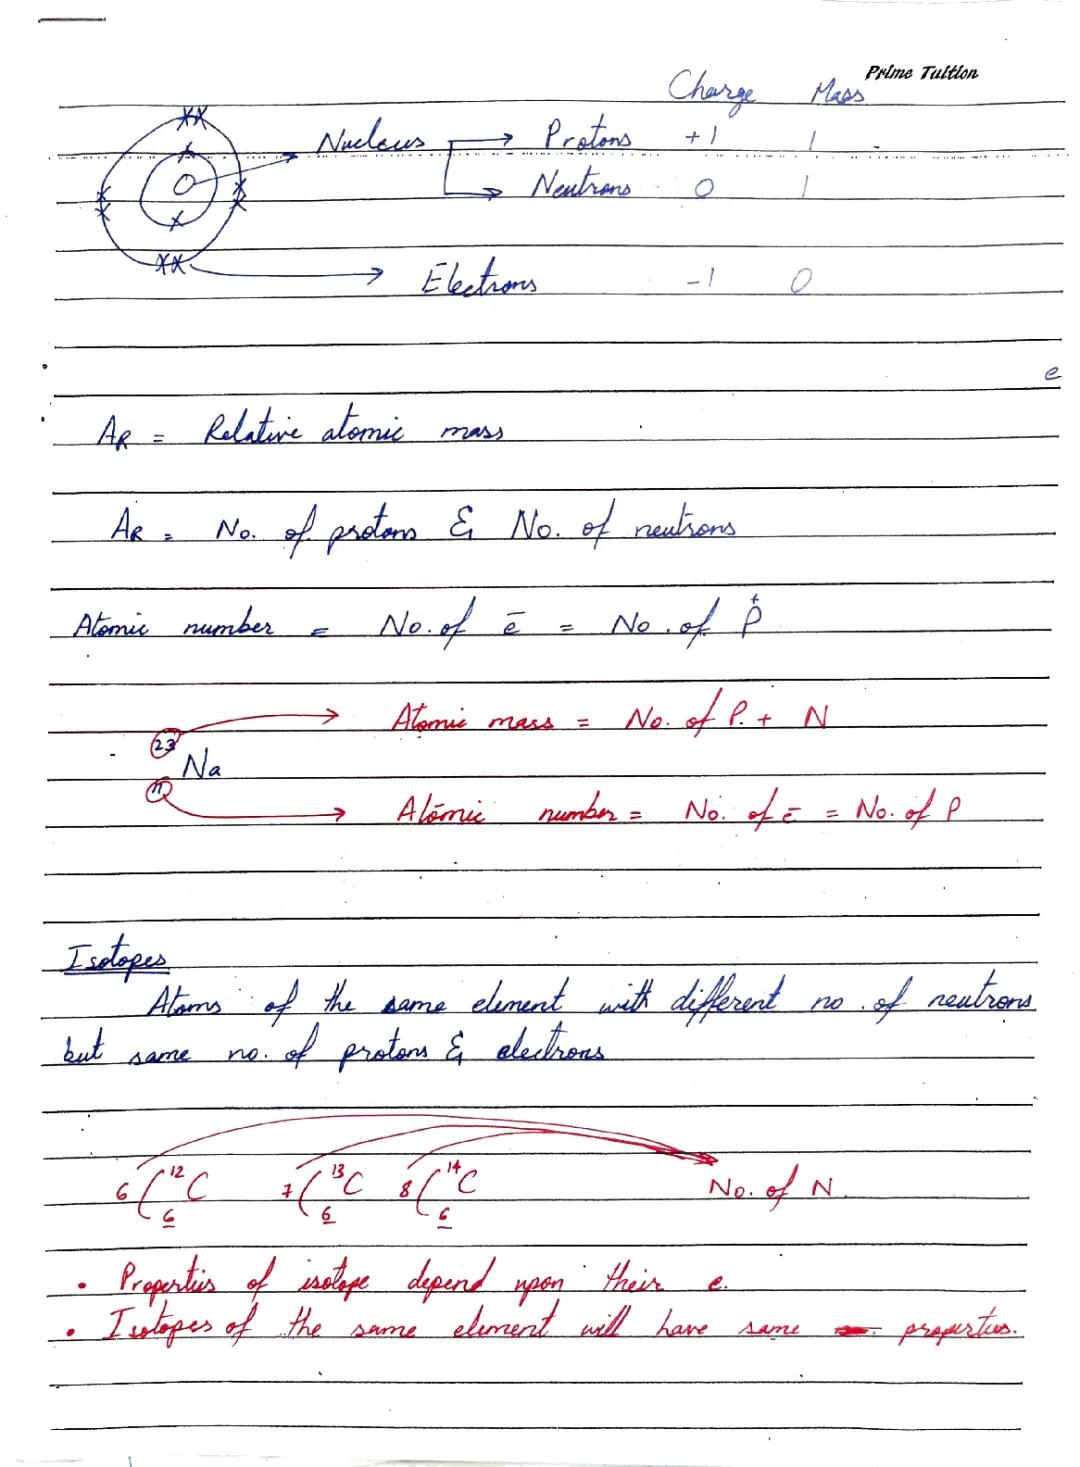 Prime Tuition
Charge Mass
Nucleus → Protons +1 1
→ Neutrons 0 1
→ Electrons -1 0
e
AR = Relative atomic mass
AR = No. of protons & No. of neutrons
Atomic number = No. of ē = No. of P⁺
23 → Atomic mass = No. of P. + N
Na
11 → Atomic number = No. of ē = No. of P
Isotopes
Atoms of the same element with different no. of neutrons
but same no. of protons & electrons
6 ( ¹²C 7 ( ¹³C 8 ( ¹⁴C No. of N.
6 6 6
• Properties of isotope depend upon their e.
• Isotopes of the same element will have same properties.